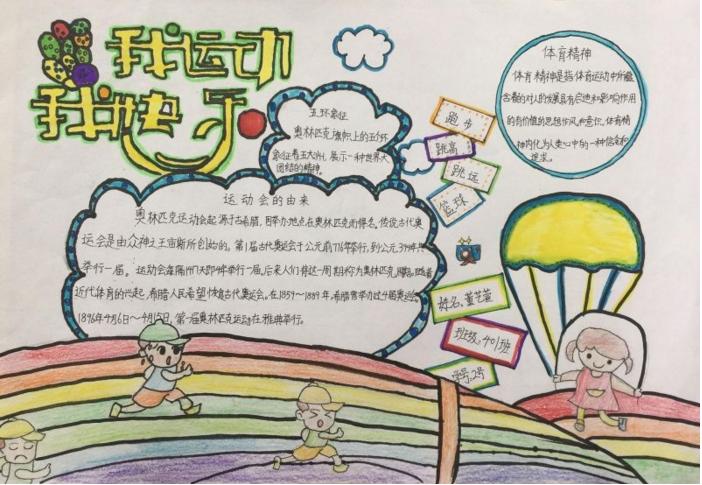 我运动
我快乐
五环象征
奥林匹克旗帜上的五环
象征着五大洲，展示一种世界大
团结的精神。
运动会的由来
奥林匹克运动会起源于古希腊，因举办地点在奥林匹克而得名。传说古代奥
运会是由众神之王宙斯所创始的。第1届古代奥运会于公元前776年举行，到公元394年共
举行一届。运动会每隔1417天即4年举行一届，后来人们将这一周期称为奥林匹克
近代体育的兴起，希腊人民希望恢复古代奥运会。在1859～1889年，希腊曾举办过4届奥运会。
1896年4月6日～4月15日，第一届奥林匹克运动在雅典举行。
跑步
跳高
跳远
篮球
姓名：董艺萱
班级：401班
学号：2号
体育精神
体育精神是指体育运动中所蕴
含着的对人的发展具有启迪和影响作用
的有价值的思想作风和意识。体育精
神内化为人类心中的一种信念和
追求。